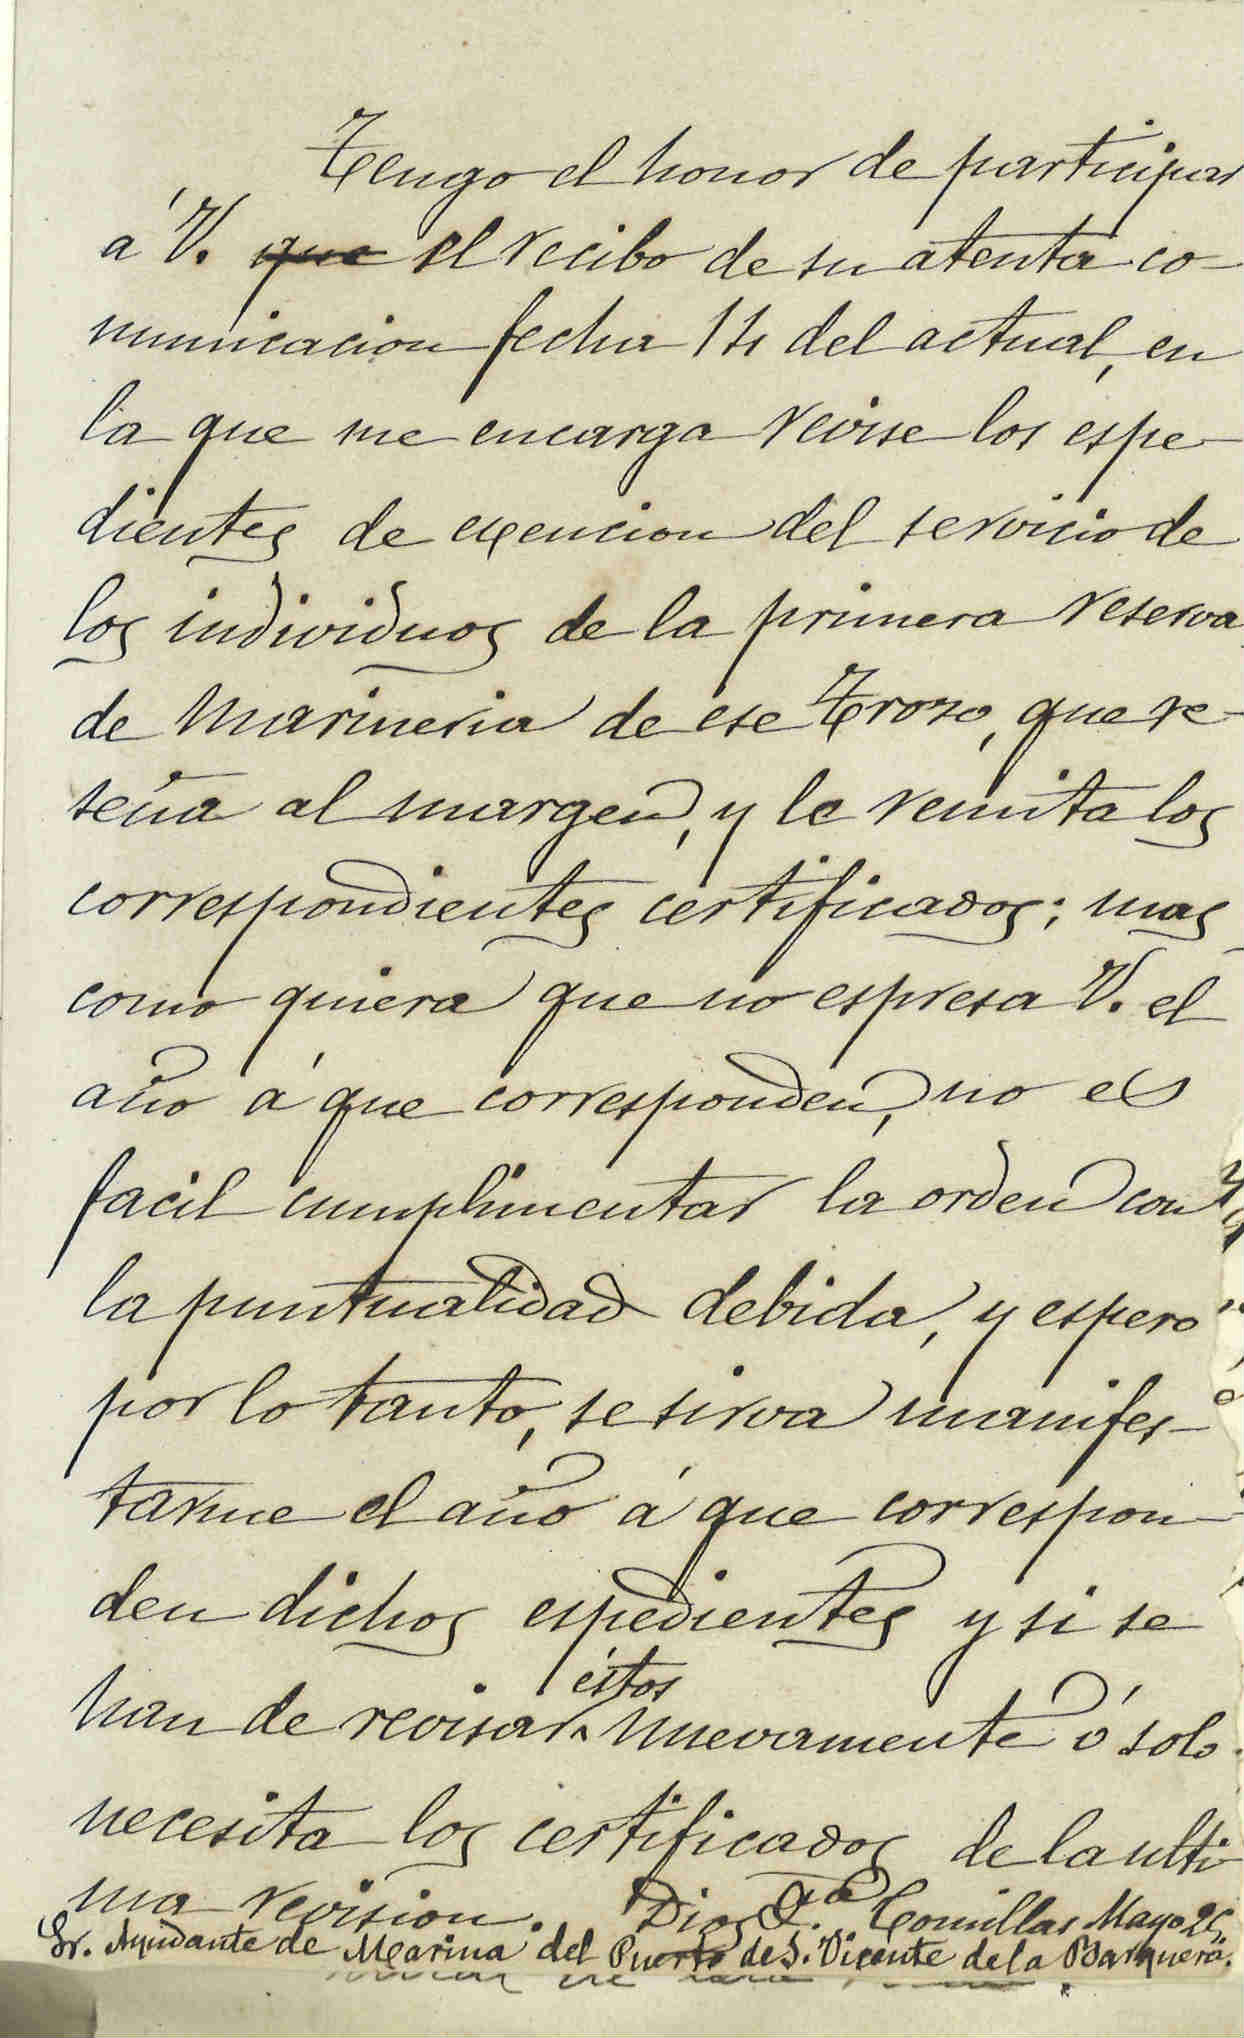 Tengo el honor de participar
á V. que el recibo de su atenta co-
municacion fecha 14 del actual, en
la que me encarga revise los espe-
dientes de exencion del servicio de
los individuos de la primera reserva
de Marineria de ese Trozo, que re-
seña al margen, y le remita los
correspondientes certificados; mas
como quiera que no espresa V. el
año á que corresponden, no es
facil cumplimentar la orden con
la puntualidad debida, y espero
por lo tanto, se sirva manifes-
tarme el año á que correspon-
den dichos espedientes y si se
han de revisar éstos nuevamente ó solo
necesita los certificados de la ulti-
ma revision. Dios Gª. Comillas Mayo 25
Sr. Ayudante de Marina del Puerto de S. Vicente de la Barquera.